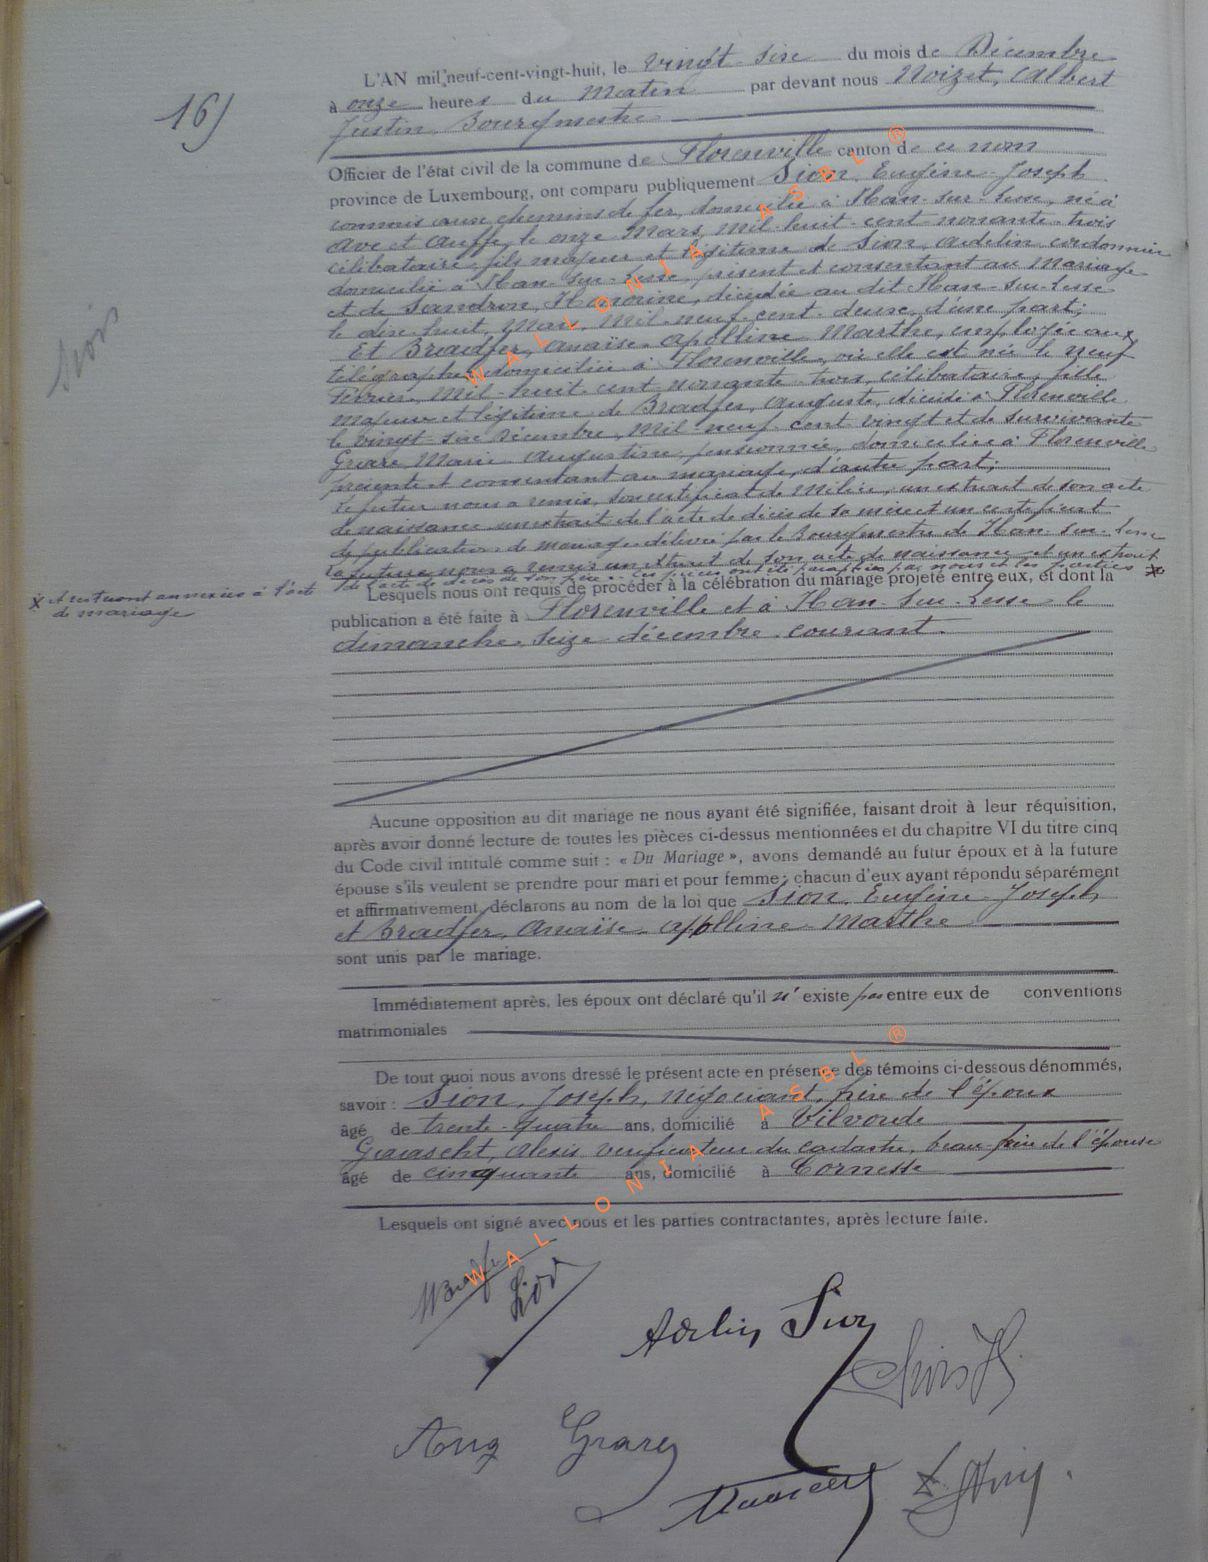 16)
L'AN mil neuf-cent-vingt-huit, le vingt-six du mois de Décembre
à onze heures du Matin par devant nous Noizet, Albert
Justin Bourgmestre
Officier de l'état civil de la commune de Florenville canton de ce nom
province de Luxembourg, ont comparu publiquement Sion, Eugène Joseph
commis aux chemins de fer, domicilié à Han-sur-Lesse, né à
Ave et Auffe, le onze Mars, mil huit cent nonante trois
célibataire, fils majeur et légitime de Sion, Adelin, cordonnier
domicilié à Han-sur-Lesse, présent et consentant au Mariage
et de Sandron, Honorine, décédée au dit Han-sur-Lesse
le dix huit, Mai, Mil neuf cent douze, d'une part;
Et Bradfer, Anaïse Apolline Marthe, employée aux
télégraphes, domiciliée à Florenville, où elle est née le neuf
février, Mil-huit cent nonante-trois, célibataire, fille
majeure et légitime de Bradfer, Auguste, décédé à Florenville
le vingt-six Décembre, Mil neuf cent vingt et de survivante
Marie Augustine, pensionnée, domiciliée à Florenville
présente et consentant au mariage, d'autre part;
Le futur nous a remis, son certificat de Milice, un extrait de son acte
de naissance un extrait de l'acte de décès de sa mère et un certificat
de publication de mariage délivré par le bourgmestre de Han-sur-Lesse
La future nous a remis un extrait de son acte de naissance et un extrait
de l'acte de décès de son père. Ces pièces ont été paraphées par nous et les parties
x et resteront annexées à l'acte
de mariage
Lesquels nous ont requis de procéder à la célébration du mariage projeté entre eux, et dont la
publication a été faite à Florenville et à Han-sur-Lesse le
dimanche, seize décembre courant.
Aucune opposition au dit mariage ne nous ayant été signifiée, faisant droit à leur réquisition,
après avoir donné lecture de toutes les pièces ci-dessus mentionnées et du chapitre VI du titre cinq
du Code civil intitulé comme suit : « Du Mariage », avons demandé au futur époux et à la future
épouse s'ils veulent se prendre pour mari et pour femme; chacun d'eux ayant répondu séparément
et affirmativement, déclarons au nom de la loi que Sion, Eugène Joseph
et Bradfer, Anaïse Apolline Marthe
sont unis par le mariage.
Immédiatement après, les époux ont déclaré qu'il n'existe pas entre eux de conventions
matrimoniales
De tout quoi nous avons dressé le présent acte en présence des témoins ci-dessous dénommés,
savoir : Sion, Joseph, négociant, frère de l'époux
âgé de trente-quatre ans, domicilié à Vilvorde
Alexis vérificateur du cadastre, beau-frère de l'épouse
âgé de cinquante ans, domicilié à Cornesse
Lesquels ont signé avec nous et les parties contractantes, après lecture faite.
Sion
Adelin Sion
WALLONIA ASBL ®
WALLONIA ASBL ®